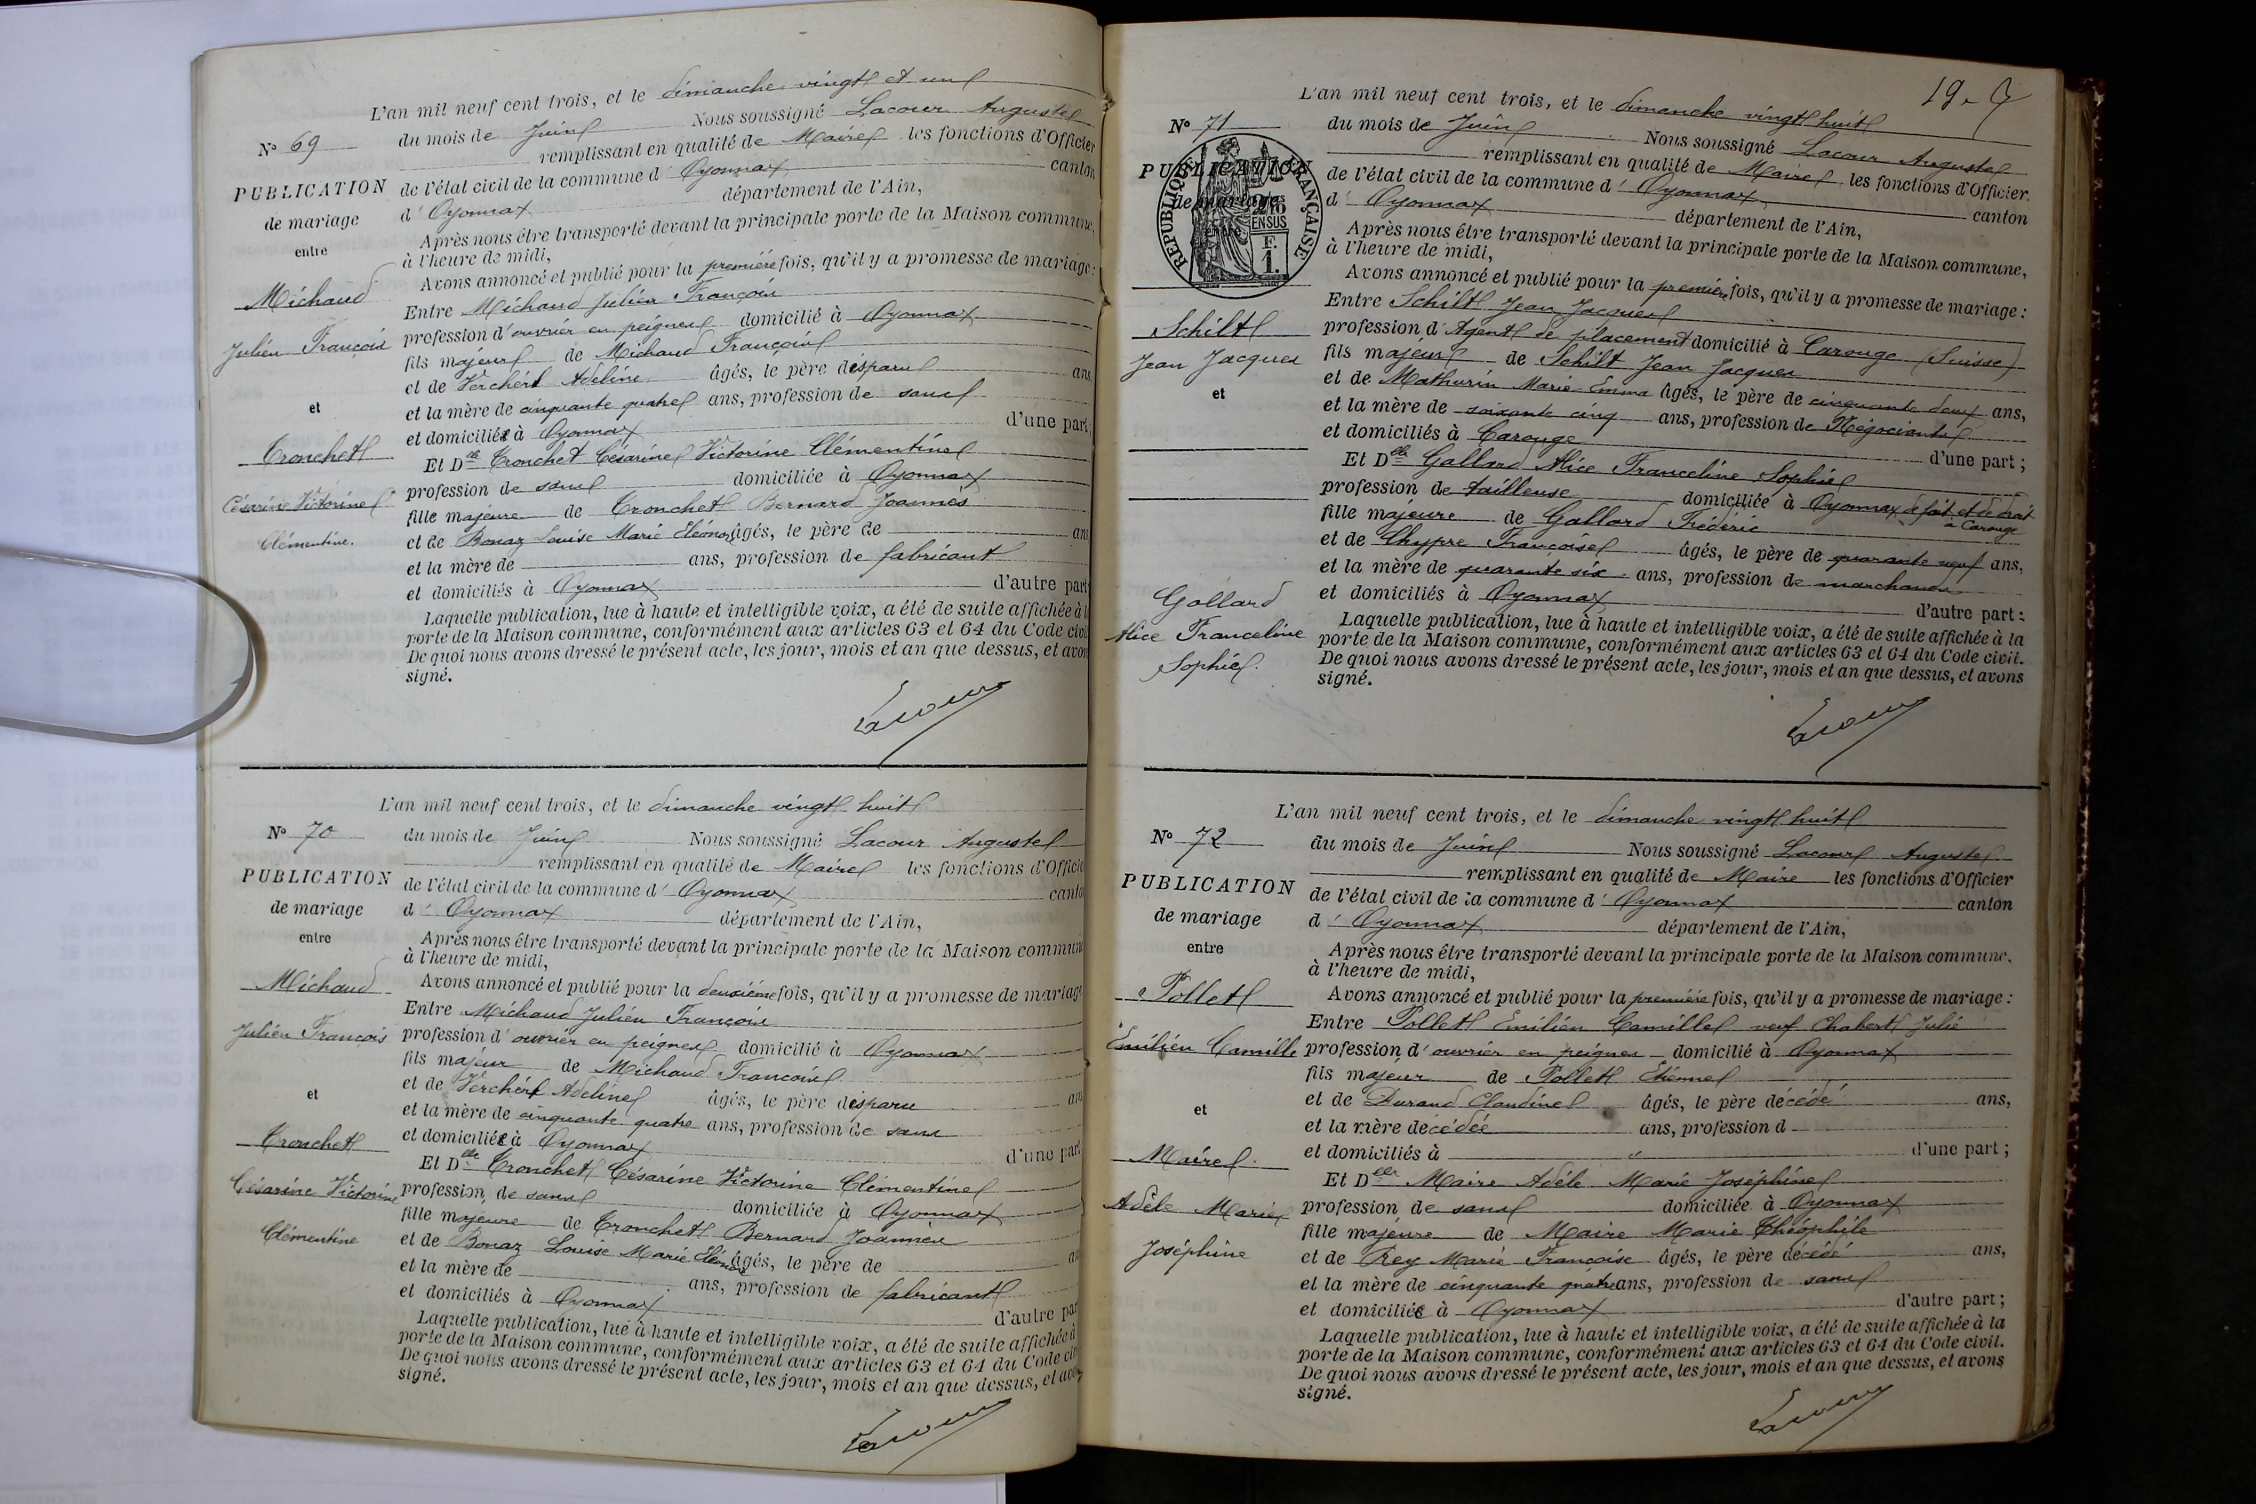 L'an mil neuf cent trois, et le dimanche vingt et un
N° 69
du mois de Juin Nous soussigné Lacour Auguste
remplissant en qualité de Maire les fonctions d'Officier
PUBLICATION
de l'état civil de la commune d' Oyonnax canton
de mariage
d' Oyonnax département de l'Ain,
entre
Après nous être transporté devant la principale porte de la Maison commune,
à l'heure de midi,
Avons annoncé et publié pour la première fois, qu'il y a promesse de mariage :
Michaud
Entre Michaud Julien François
Julien François
profession d'ouvrier en peignes domicilié à Oyonnax
fils majeur de Michaud François
et de Verchère Adeline âgés, le père disparu ans,
et
et la mère de cinquante quatre ans, profession de sans
et domiciliée à Oyonnax d'une part,
Tronchet
Et Dlle Tronchet Césarine Victorine Clémentine
Césarine Victorine
profession de sans domiciliée à Oyonnax
Clémentine.
fille majeure de Tronchet Bernard Joannès
et de Bonaz Louise Marie Eléonore âgés, le père de ans
et la mère de ans, profession de fabricant
et domiciliés à Oyonnax d'autre part
Laquelle publication, lue à haute et intelligible voix, a été de suite affichée à la
porte de la Maison commune, conformément aux articles 63 et 64 du Code civil
De quoi nous avons dressé le présent acte, les jour, mois et an que dessus, et avons
signé.
Lacour
L'an mil neuf cent trois, et le dimanche vingt huit
N° 70
du mois de Juin Nous soussigné Lacour Auguste
remplissant en qualité de Maire les fonctions d'Officie
PUBLICATION
de l'état civil de la commune d' Oyonnax canto
de mariage
d' Oyonnax département de l'Ain,
entre
Après nous être transporté devant la principale porte de la Maison commune
à l'heure de midi,
Avons annoncé et publié pour la deuxième fois, qu'il y a promesse de mariage
Michaud
Entre Michaud Julien François
Julien François
profession d'ouvrier en peignes domicilié à Oyonnax
fils majeur de Michaud François
et de Verchère Adeline âgés, le père disparu ans
et
et la mère de cinquante quatre ans, profession de sans
et domiciliée à Oyonnax d'une part
Tronchet
Et Dlle Tronchet Césarine Victorine Clémentine
Césarine Victorine
profession de sans domiciliée à Oyonnax
Clémentine
fille majeure de Tronchet Bernard Joannès
et de Bonaz Louise Marie Eléonore âgés, le père de an
et la mère de ans, profession de fabricant
et domiciliés à Oyonnax d'autre par
Laquelle publication, lue à haute et intelligible voix, a été de suite affichée à
porte de la Maison commune, conformément aux articles 63 et 64 du Code civ
De quoi nous avons dressé le présent acte, les jour, mois et an que dessus, et avon
signé.
Lacour
19
L'an mil neuf cent trois, et le dimanche vingt huit
N° 71
du mois de Juin Nous soussigné Lacour Auguste
remplissant en qualité de Maire les fonctions d'Officier
PUBLICATION
de l'état civil de la commune d' Oyonnax canton
de mariage
entre
RÉPUBLIQUE FRANÇAISE
d' Oyonnax département de l'Ain,
Après nous être transporté devant la principale porte de la Maison commune,
à l'heure de midi,
Avons annoncé et publié pour la première fois, qu'il y a promesse de mariage :
Entre Schilt Jean Jacques
Schilt
profession d'Agent de placement domicilié à Carouge (Suisse)
Jean Jacques
fils majeur de Schilt Jean Jacques
et de Mathurin Marie Emma âgés, le père de cinquante deux ans,
et
et la mère de soixante cinq ans, profession de Négociants
et domiciliés à Carouge d'une part ;
Et Dlle Gallard Alice Franceline Sophie
profession de tailleuse domiciliée à Oyonnax de fait et de droit
à Carouge
fille majeure de Gallard Frédéric
et de Chypre Françoise âgés, le père de quarante neuf ans,
et la mère de quarante six ans, profession de marchands
Gallard
et domiciliés à Oyonnax d'autre part :
Alice Franceline
Sophie.
Laquelle publication, lue à haute et intelligible voix, a été de suite affichée à la
porte de la Maison commune, conformément aux articles 63 et 64 du Code civil.
De quoi nous avons dressé le présent acte, les jour, mois et an que dessus, et avons
signé.
Lacour
L'an mil neuf cent trois, et le dimanche vingt huit
N° 72
du mois de Juin Nous soussigné Lacour Auguste
remplissant en qualité de Maire les fonctions d'Officier
PUBLICATION
de l'état civil de la commune d' Oyonnax canton
de mariage
d' Oyonnax département de l'Ain,
entre
Après nous être transporté devant la principale porte de la Maison commune.
à l'heure de midi,
Avons annoncé et publié pour la première fois, qu'il y a promesse de mariage :
Pollet
Entre Pollet Emilien Camille veuf Chabert Julie
Emilien Camille
profession d'ouvrier en peignes domicilié à Oyonnax
fils majeur de Pollet Etienne
et de Durand Claudine âgés, le père décédé ans,
et
et la mère décédée ans, profession d
et domiciliés à " d'une part ;
Maire
Et Dlle Maire Adèle Marie Joséphine
Adèle Marie
profession de sans domiciliée à Oyonnax
Joséphine
fille majeure de Maire Marie Théophile
et de Rey Marie Françoise âgés, le père décédé ans,
et la mère de cinquante quatre ans, profession de sans
et domiciliée à Oyonnax d'autre part ;
Laquelle publication, lue à haute et intelligible voix, a été de suite affichée à la
porte de la Maison commune, conformément aux articles 63 et 64 du Code civil.
De quoi nous avons dressé le présent acte, les jour, mois et an que dessus, et avons
signé.
Lacour